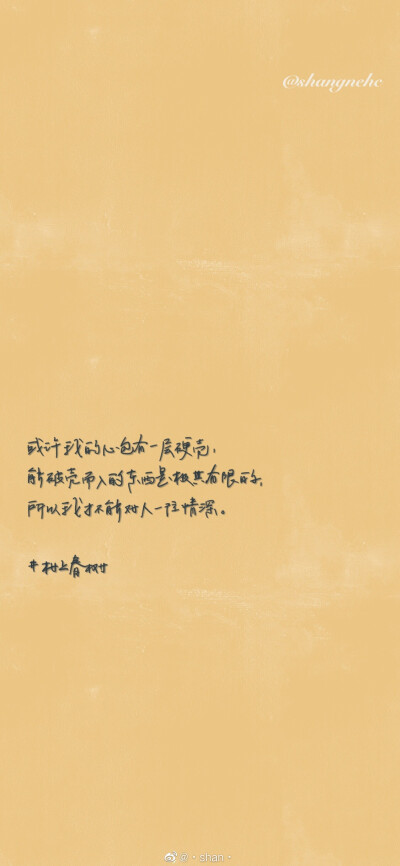 @shangnehc
或许我的心包有一层硬壳，
能破壳而入的东西是极其有限的，
所以我才不能对人一往情深。
#村上春树
@·shan·